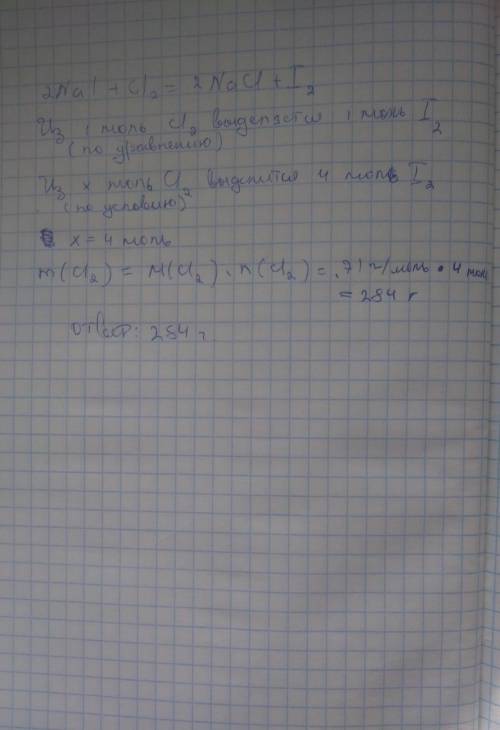 2NaI + Cl₂ = 2NaCl + I₂
Из 1 моль Cl₂ выделяется 1 моль I₂
(по уравнению)
Из x моль Cl₂ выделится 4 моль I₂
(по условию)
x = 4 моль
m(Cl₂) = M(Cl₂) · n(Cl₂) = 71 г/моль · 4 моль
= 284 г
ответ: 284 г